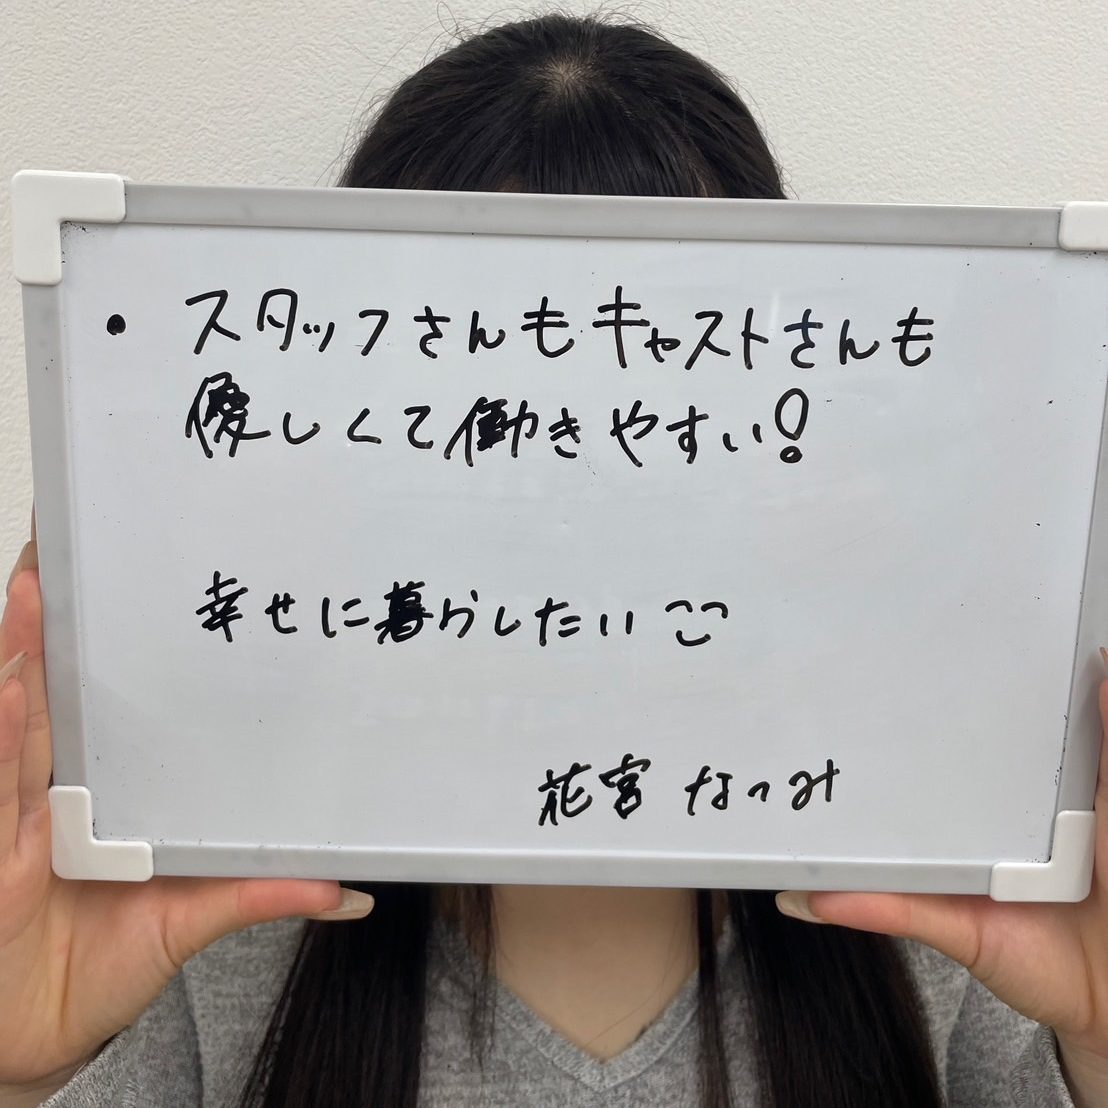 ・スタッフさんもキャストさんも
優しくて働きやすい!
幸せに暮らしたい
花宮 なつみ